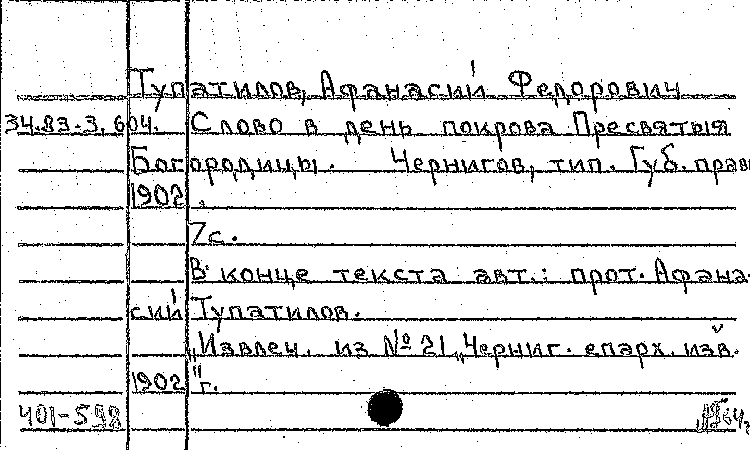 Тупатилов, Афанасий Федорович
34.83-3.604. Слово в день покрова Пресвятыя
Богородицы. Чернигов, тип. Губ. прав
1902.
7с.
В конце текста авт.: прот. Афана-
сий Тупатилов.
„Извлеч. из № 21 „Черниг. епарх. изв.
1902 "г.
401-598